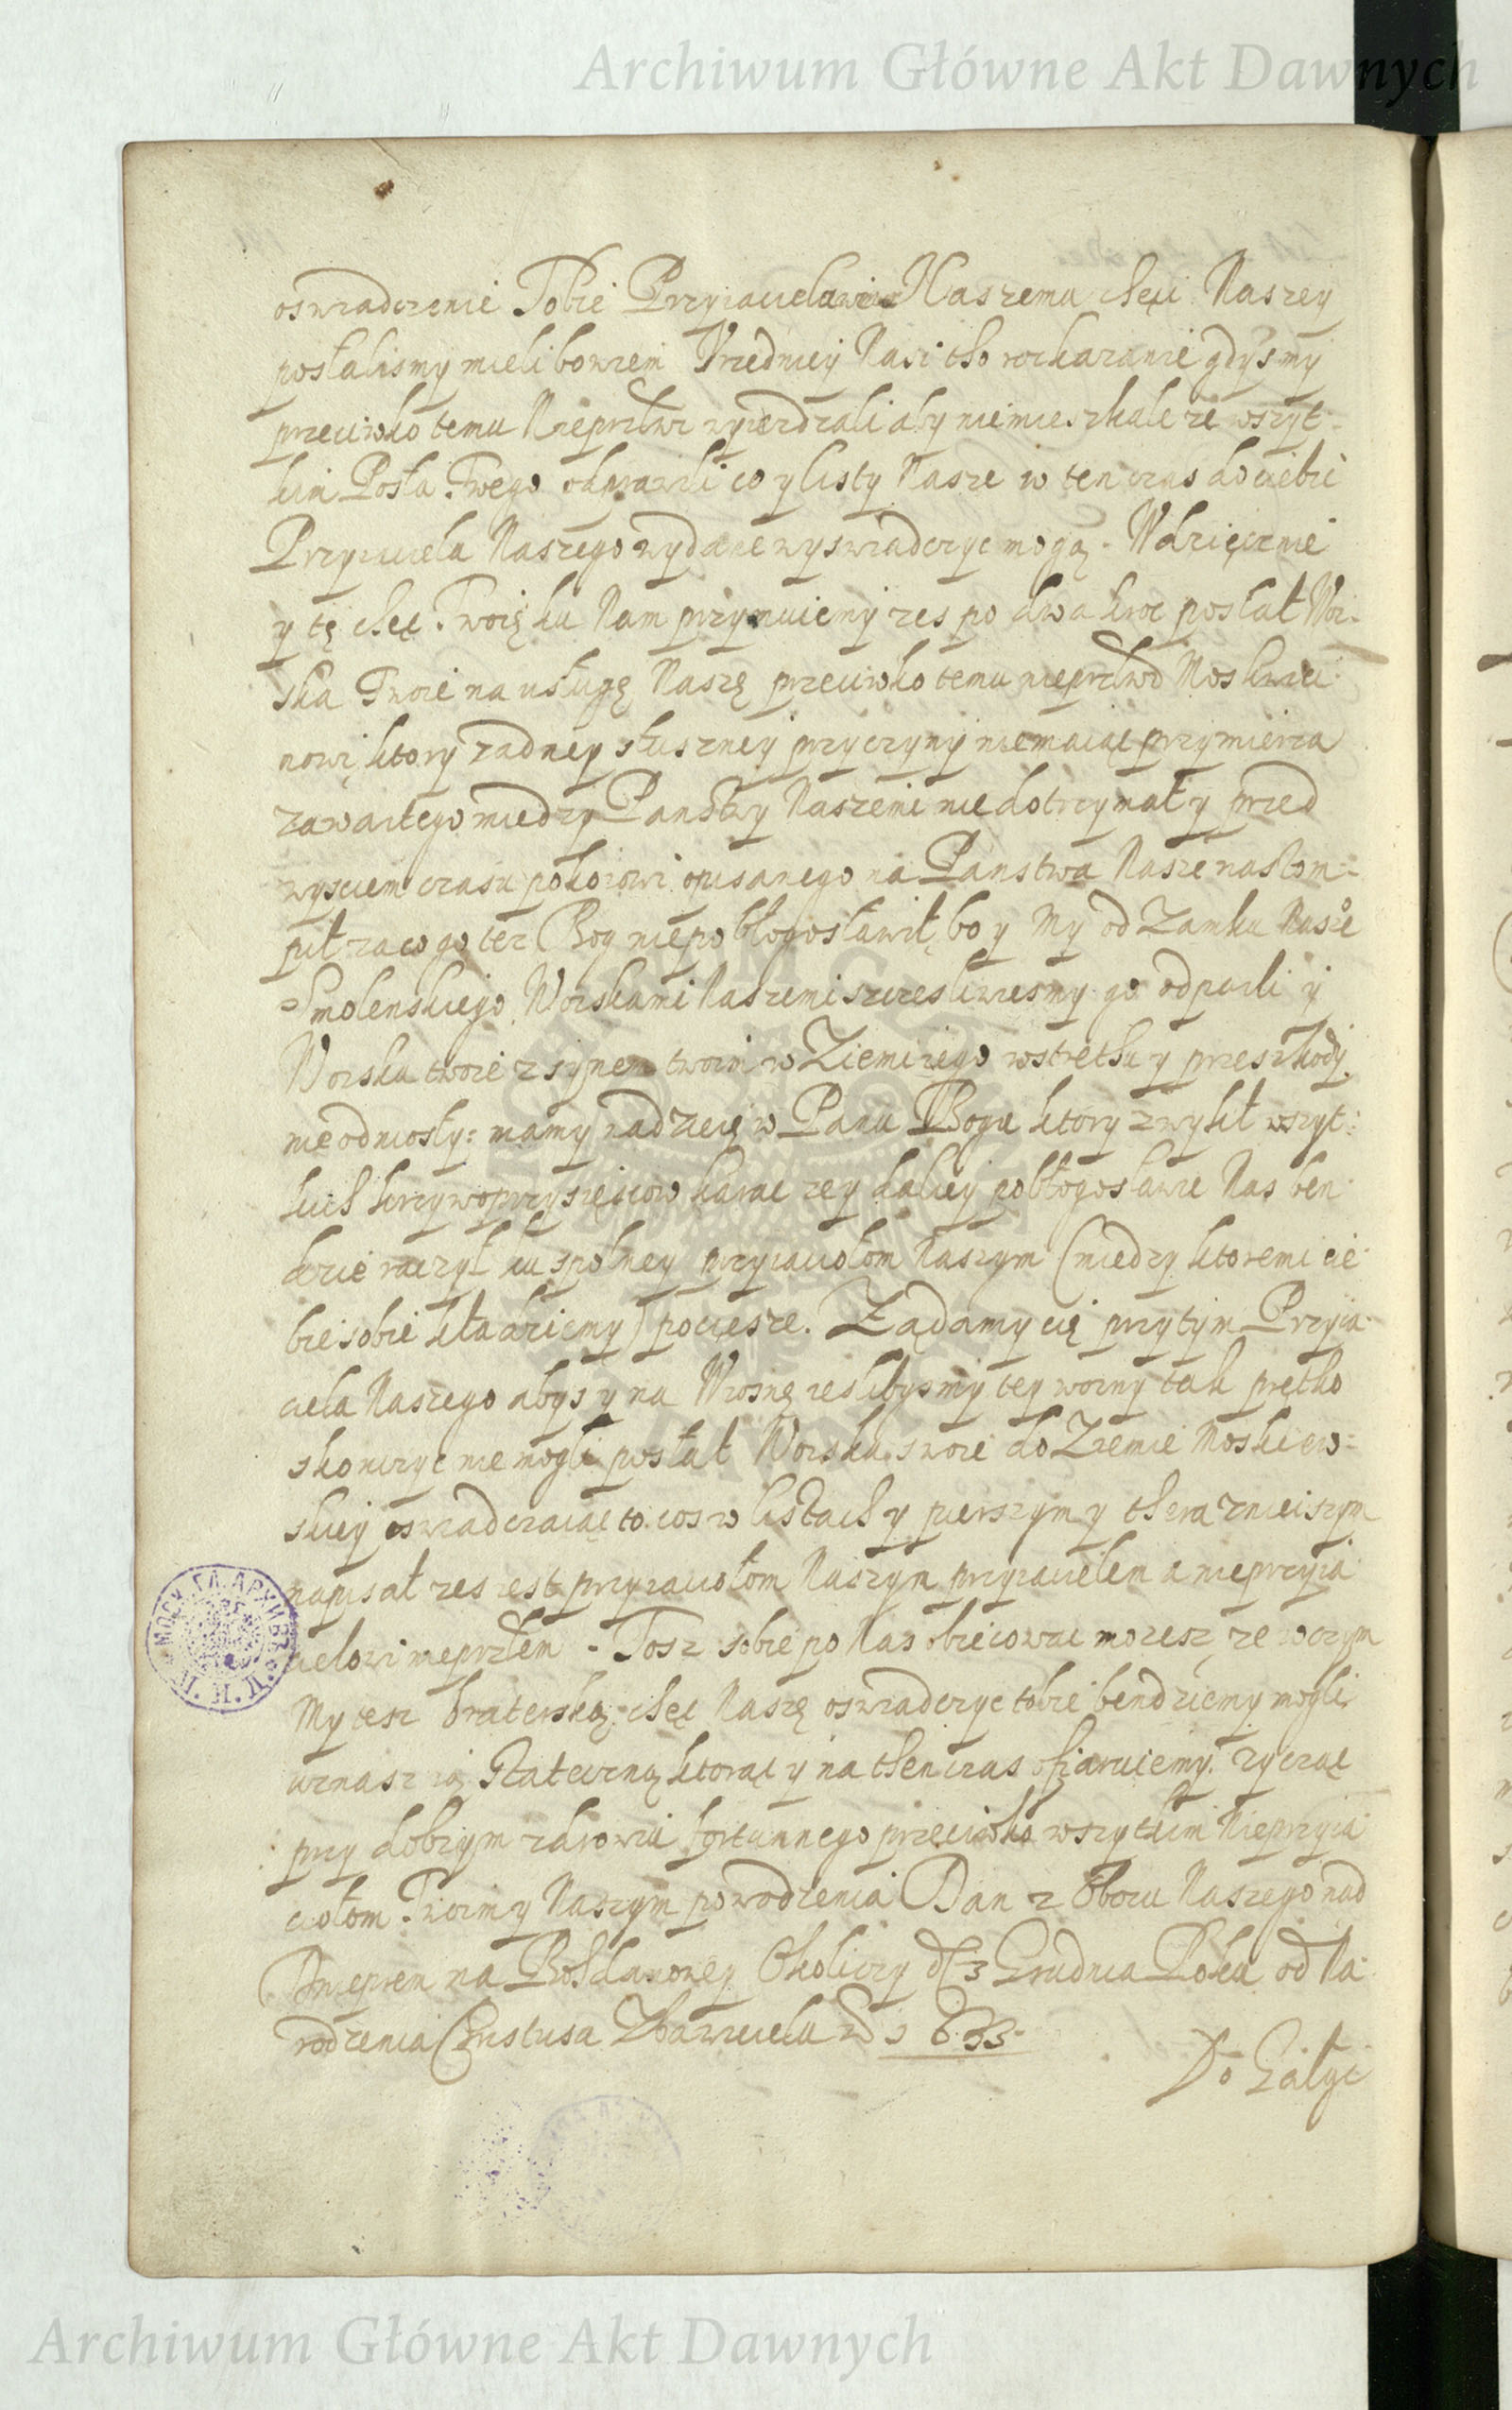 Archiwum Główne Akt Dawnych
oswiadczenie Tobie Przyiacielowi Naszemu chęci Naszey
posłalismy mieli bowiem Urzędnicy Nasi tho roskazanie gdysmy
przeciwko temu Nieprzlwi wyiezdzali aby niemieszkale ze wszyt-
kim Posła Twego odprawili co y listy Nasze w ten czas do ciebie
Przyiaciela Naszego wydane wyswiadczyc mogą. Wdzięcznie
y tę chęc Twoię ku Nam przymuiemy zes po dwa kroc posłał Woi-
ska Twoie na usługę Naszę przeciwko temu nieprzlwi Moskwici-
nowi ktory zadney słuszney przyczyny niemaiąc przymierza
zawartego miedzy Panstwy Naszemi nie dotrzymał y przed
wysciem czasu pokoiowi opisanego na Panstwa Nasze nastom-
pił za co go tez Bog niepobłogosławił, bo y My od Zamku Nasze
Smolenskiego Woiskami Naszemi szczesliwiesmy go odparli y
Woiska twoie z synem twoim w Ziemi iego wstrethu y przeszkody
nie odniosły: mamy nadzieię w Panu Bogu ktory zwykł wszyt-
kich krzywoprzysięscow karac zey daley pobłogosławic Nas ben-
dzie raczył ku spolney przyiaciołom Naszym (miedzy ktoremi cie-
bie sobie kładziemy) pociesze. Ządamy cię przytym Przyia-
ciela Naszego abys y na Wiosnę ieslibysmy tey woiny tak prętko
skonczyc nie mogli posłał Woiska swoie do Ziemie Moskiew-
skiey oswiadczaiąc to cos w listach y pierszym y theraznieiszym
napisał zes iest przyiaciołom Naszym przyiacielem a nieprzyia-
cielowi nieprzlem. Tosz sobie po Nas obiecowac mozesz, ze w czym
My tesz braterską chęc Naszę oswiadczyc tobie bendziemy mogli
uznasz ią statecznę, ktorąc y na then czas ofiaruiemy. zycząc
przy dobrym zdrowiu fortunnego przeciwko wszytkim Nieprzyia-
ciołom Twoim y Naszym powodzenia Dan z Obozu Naszego nad
Dnieprem na Bohdanowey Okoliczy d. 3 Grudnia Roku od Na-
rodzenia Chrystusa Zbawiciela W 1633.
Do Gałgi
Archiwum Główne Akt Dawnych